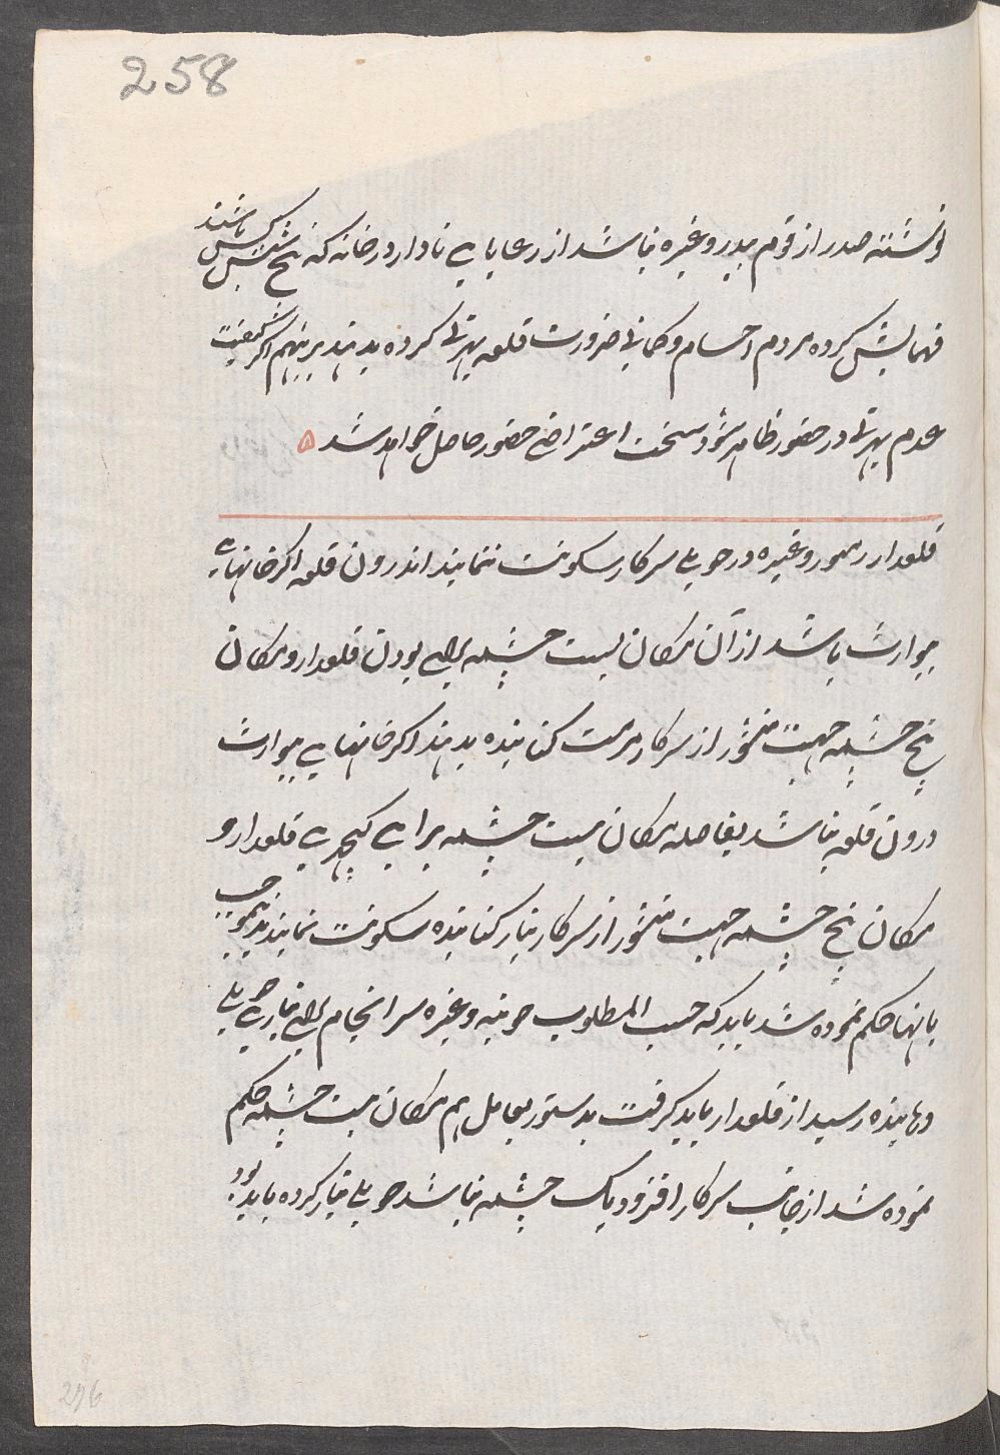 258
نوشته صدر از قوم بیدر و غیره نباشد از رعایا ے نادار در خانه که پنج شش کس باشند
فهمایش کرده مردم احسام و کمانی ضرورت قلعه بهرتی کرده بدهند برینهم اکر کیفیت
عدم بهرتی در حضور ظاهر شود سخت اعتراضے حضور حاصل خواهد شد ۵
قلعدار رهمور و غیره در حویلی سرکار سکونت ننمایند اندرون قلعه اکر خانهاے
بیوارث باشد از آن مکان بیست چشمه براے بودن قلعدار و مکان
پنج چشمه جهت منشور از سرکار مرمت کنانیده بدهند اکر خانها ے بیوارث
درون قلعه نباشد بفاصله مکان بیست چشمه براے کچهرے قلعدار و
مکان پنج چشمه جهت منشور از سرکار تیار کنانیده سکونت نمایند بموجب
بانها حکم نموده شد باید که حسب المطلوب چونه و غیره سرانجام براے تیارے حویلی
دهانیده رسید از قلعدار باید کرفت بدستور بعامل هم مکان بیست چشمه حکم
نموده شد از جانب سرکار افزود یک چشمه نباشد حویلی تیار کرده باید بود
296